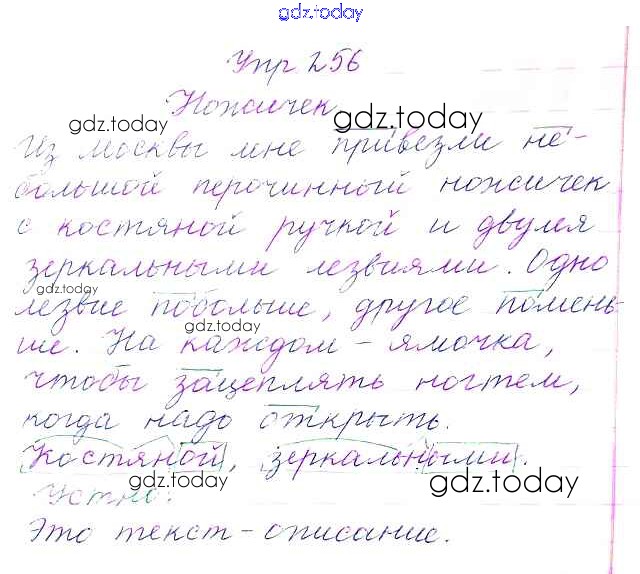 gdz.today
Упр. 256
Ножичек
gdz.today
gdz.today
Из Москвы мне привезли не-
большой перочинный ножичек
с костяной ручкой и двумя
зеркальными лезвиями. Одно
gdz.today
лезвие побольше, другое помень-
gdz.today
ше. На каждом - ямочка,
чтобы зацеплять ногтем,
когда надо открыть.
Костяной, зеркальными.
gdz.today
gdz.today
Устно:
Это текст-описание.